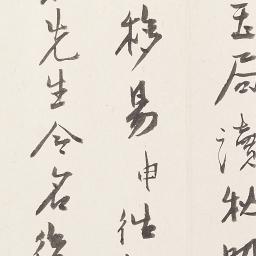 玉局讀秋明
移易申詒
先生令名